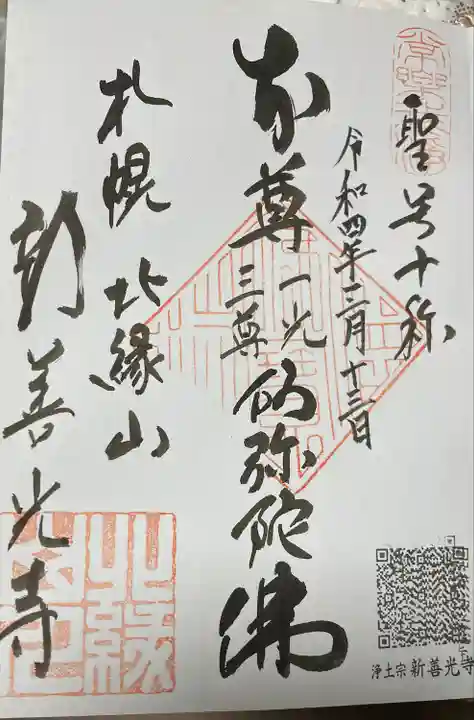 聖号十称
令和四年二月十三日
本尊 一光三尊 仏弥陀佛
札幌 北縁山
新善光寺
浄土宗 新善光寺